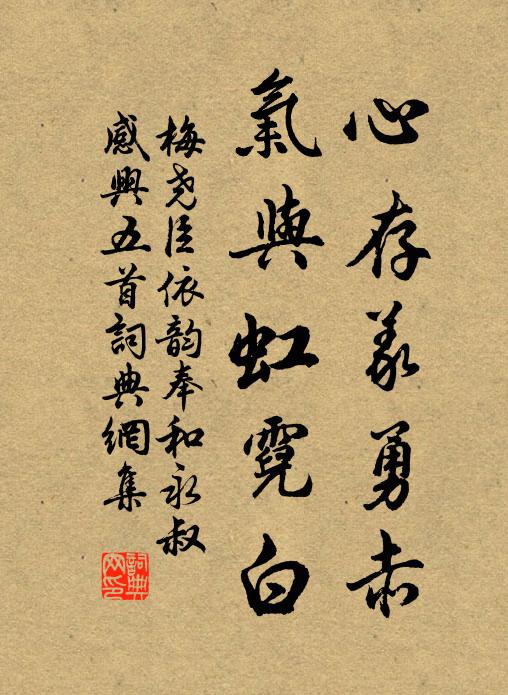 心存義勇赤
氣與虹霓白
梅堯臣依韵奉和永叔
感興五首詞典網集
詞典
网印